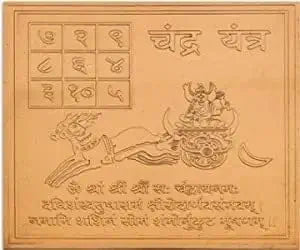 चंद्र यंत्र
७ २ ९
८ ६ ४
३ १० ५
ॐ श्रां श्रीं श्रौं सः चंद्रायनमः
दधिशंखतुषाराभं क्षीरोदार्णवसंभवम्।
नमामि शशिनं सोमं शंभोर्मुकुट भूषणम्॥